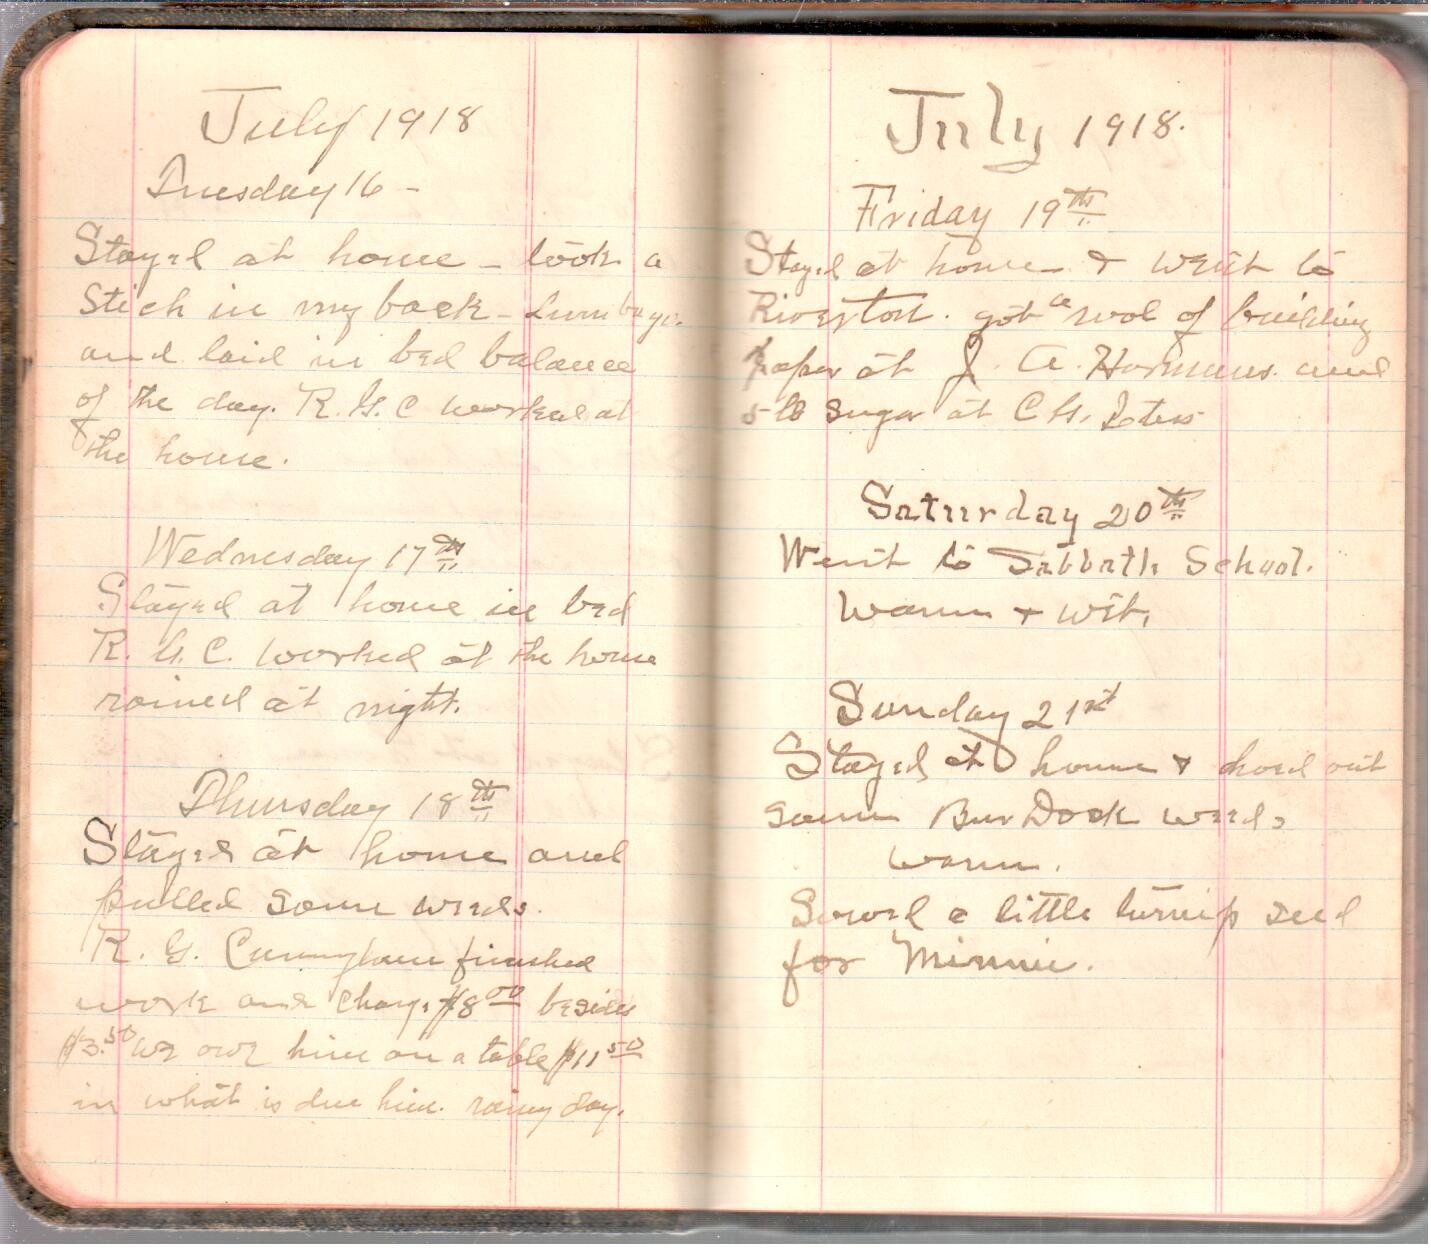 July 1918
Tuesday 16 -
Stayed at home - took a
Stich in my back - Lumbago.
and laid in bed balance
of the day. R. G. C worked at
the house.
Wednesday 17th
Stayed at home in bed
R. G. C. worked at the house
rained at night.
Thursday 18th
Stayed at home and
pulled some weeds.
R. G. Cunningham finished
work and charg. $8.00 besides
$3.50 we owe him on a table $11.50
in what is due him. rainy day.
July 1918.
Friday 19th
Stayed at home & went to
Riverton. got a rool of building
paper at J. A. and
5 lb sugar at C. H.
Saturday 20th
Went to Sabbath School.
Warm & wet.
Sunday 21st
Stayed at home & hoed out
some BurDock weeds
warm.
Sowed a little turnip seed
for Minnie.